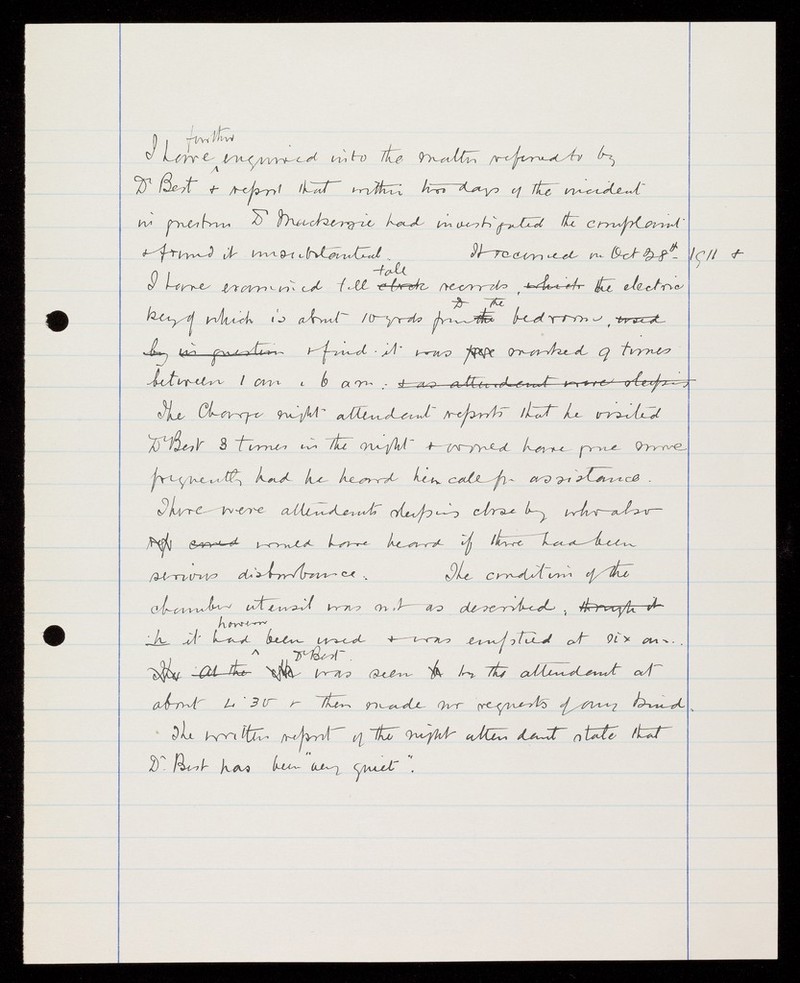 I have further enquired into the matter referred to by
Dr Best & report that within two days of the incident
in question Dr Mackenzie had investigated the complaint
& found it unsubstantial. It occurred on Oct 28th 1911 &
I have examined tell tale clock records, which the electric
key of which is about 10 yards from the D the bedroom, used
by in question & find it was marked 9 times
between 1 am & 6 am: & as attendant were sleeping
The Charge night attendant reports that he visited
Dr Best 3 times in the night & would have gone more
frequently had he heard him call for assistance.
There were attendants sleeping close by who also
could would have heard if there had been
serious disturbance. The condition of the
chamber utensil was not as described, though it
it had however been used & was emptied at six am.
At the Dr Best was seen by the attendant at
about 4.30 & then made no requests of any kind.
The written report of the night attendant state that
Dr Best has been "very quiet".